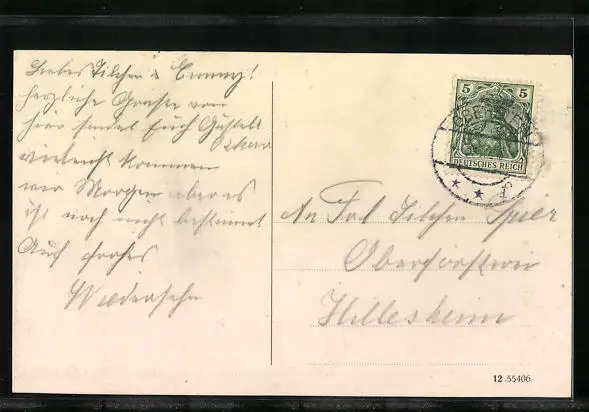 Liebes Tilchen & Emmy!
herzliche Grüße von
hier sendet Euch Gustel
vielleicht kommen
wir Morgen aber es
ist noch nicht bestimmt
Auf frohes
Wiedersehn
5 5
DEUTSCHES REICH
An Frl Tilchen Spier
Oberförsterei
Hillesheim
12.55406